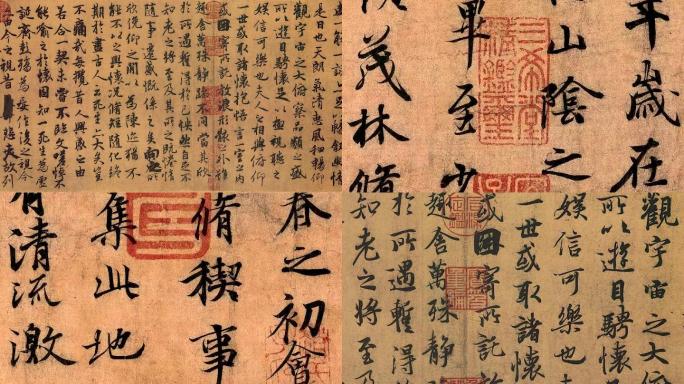 詠亦足以暢敘幽情
是日也天朗氣清惠風和暢仰
觀宇宙之大俯察品類之盛
所以遊目騁懷足以極視聽之
娛信可樂也夫人之相與俯仰
一世或取諸懷抱悟言一室之內
或因寄所託放浪形骸之外雖
趣舍萬殊靜躁不同當其欣
於所遇暫得於己快然自足不
知老之將至及其所之既惓情
隨事遷感慨係之矣向之所
欣俛仰之閒以為陳迹猶不
能不以之興懷況脩短隨化終
期於盡古人云死生亦大矣豈
不痛哉每攬昔人興感之由
若合一契未嘗不臨文嗟悼不
能喻之於懷固知一死生為虛
誕齊彭殤為妄作後之視今
由今之視昔悲夫故列
年歲在
山陰之
三希堂
精鑑璽
畢至少
茂林脩
春之初會
脩稧事
集此地
有清流激
觀宇宙之大俯
所以遊目騁懷
娛信可樂也
一世或取諸懷
或因寄所託
趣舍萬殊靜
於所遇暫得
知老之將至及